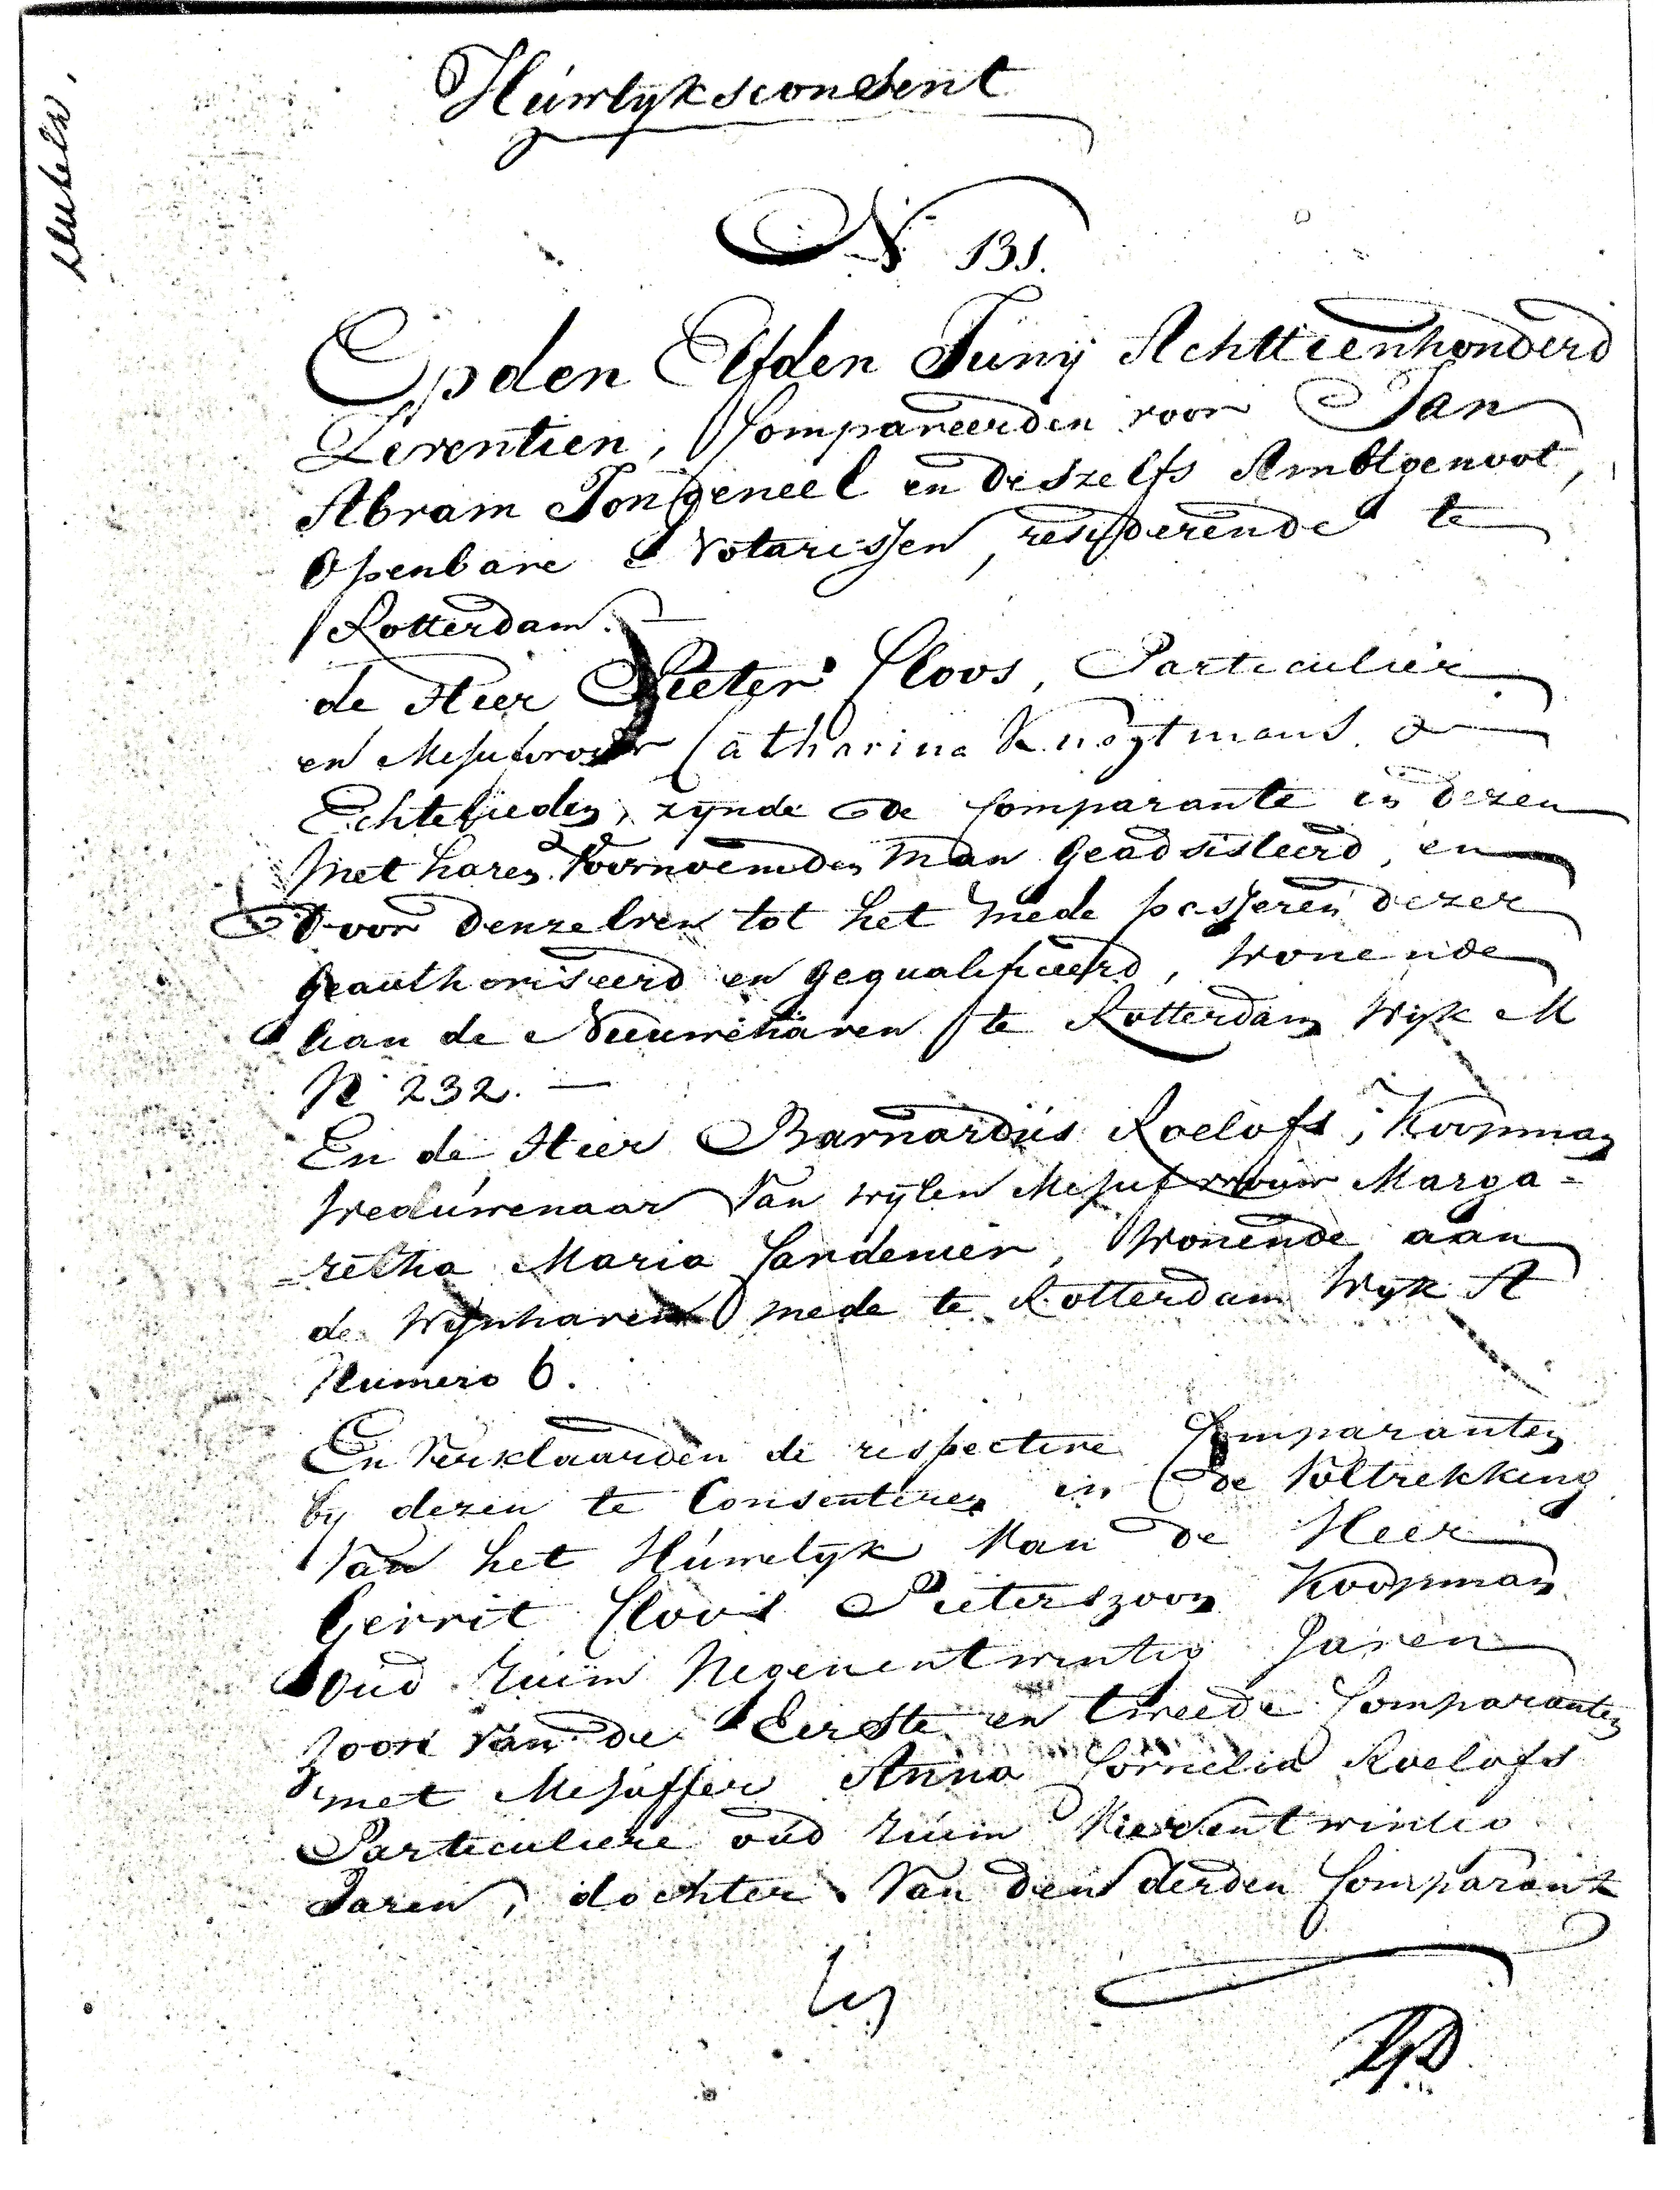 Huwlyksconsent
N 131.
Op den Elfden Juny Achttienhonderd
Zeventien, Compareerden voor Jan
Abram Jongeneel en deszelfs Ambtgenoot,
Openbare Notarissen, resideerende te
Rotterdam.
de Heer Pieter Cloos, Particulier
en Mejufvrouw Catharina Kuytmans
Echtelieden, zynde de Comparante in dezen
met haren voornoemden man geadsisteerd, en
door denzelven tot het mede passeren dezer
geauthoriseerd en gequalificeerd, wonende
aan de Nieuwehaven te Rotterdam Wyk M
No 232. —
En de Heer Barnardus Roelofs, Koopman
Weduwenaar van wylen Mejufvrouw Marga=
=retha Maria Cardemier, Wonende aan
de Wynhaven mede te Rotterdam Wyk A
Numero 6.
En Verklaarden de respective Comparanten
by dezen te Consenteren in de Voltrekking
Van het Huwelyk Van de Heer
Gerrit Cloos Pieterszoon Koopman
oud ruim Negenentwintig Jaren
zoon van de Eerste en tweede Comparanten
met Mejuffer Anna Cornelia Roelofs
Particuliere oud ruim Vierentwintig
Jaren, dochter Van den derden Comparant